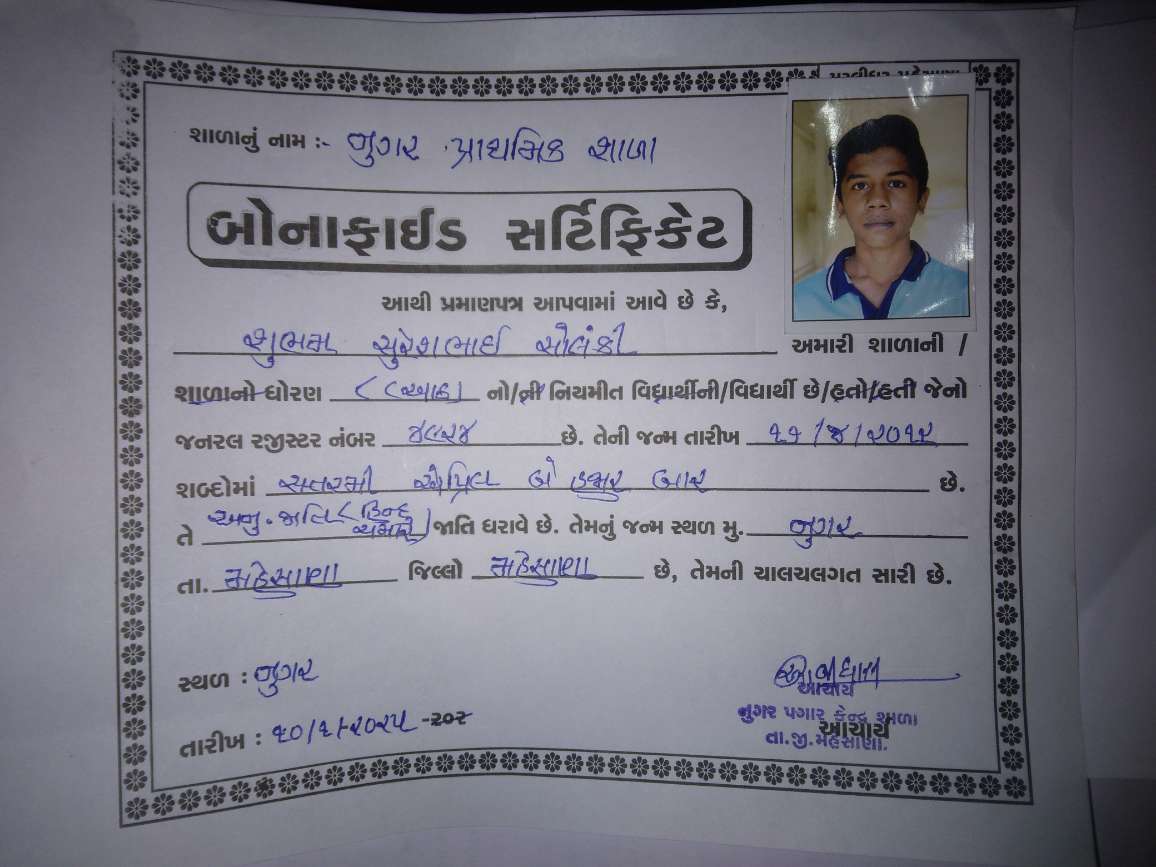 શાળાનું નામ :- નુગર પ્રાથમિક શાળા
બોનાફાઈડ સર્ટિફિકેટ
આથી પ્રમાણપત્ર આપવામાં આવે છે કે,
શુભમ સુરેશભાઈ સોલંકી અમારી શાળાની /
શાળાનો ધોરણ ૮ (આઠ) નો/ની નિયમીત વિદ્યાર્થીની/વિદ્યાર્થી છે/હતો/હતી જેનો
જનરલ રજીસ્ટર નંબર ૪૯૨૪ છે. તેની જન્મ તારીખ ૧૭/૪/૨૦૧૨
શબ્દોમાં સત્તરમી એપ્રિલ બે હજાર બાર છે.
તે અનુ. જાતિ (હિન્દુ ચમાર) જાતિ ધરાવે છે. તેમનું જન્મ સ્થળ મુ. નુગર
તા. મહેસાણા જિલ્લો મહેસાણા છે, તેમની ચાલચલગત સારી છે.
સ્થળ : નુગર
તારીખ : ૧૦/૧/૨૦૨૫ -૨૦૨
આચાર્ય
નુગર પગાર કેન્દ્ર શાળા
આચાર્ય
તા.જી.મહેસાણા.